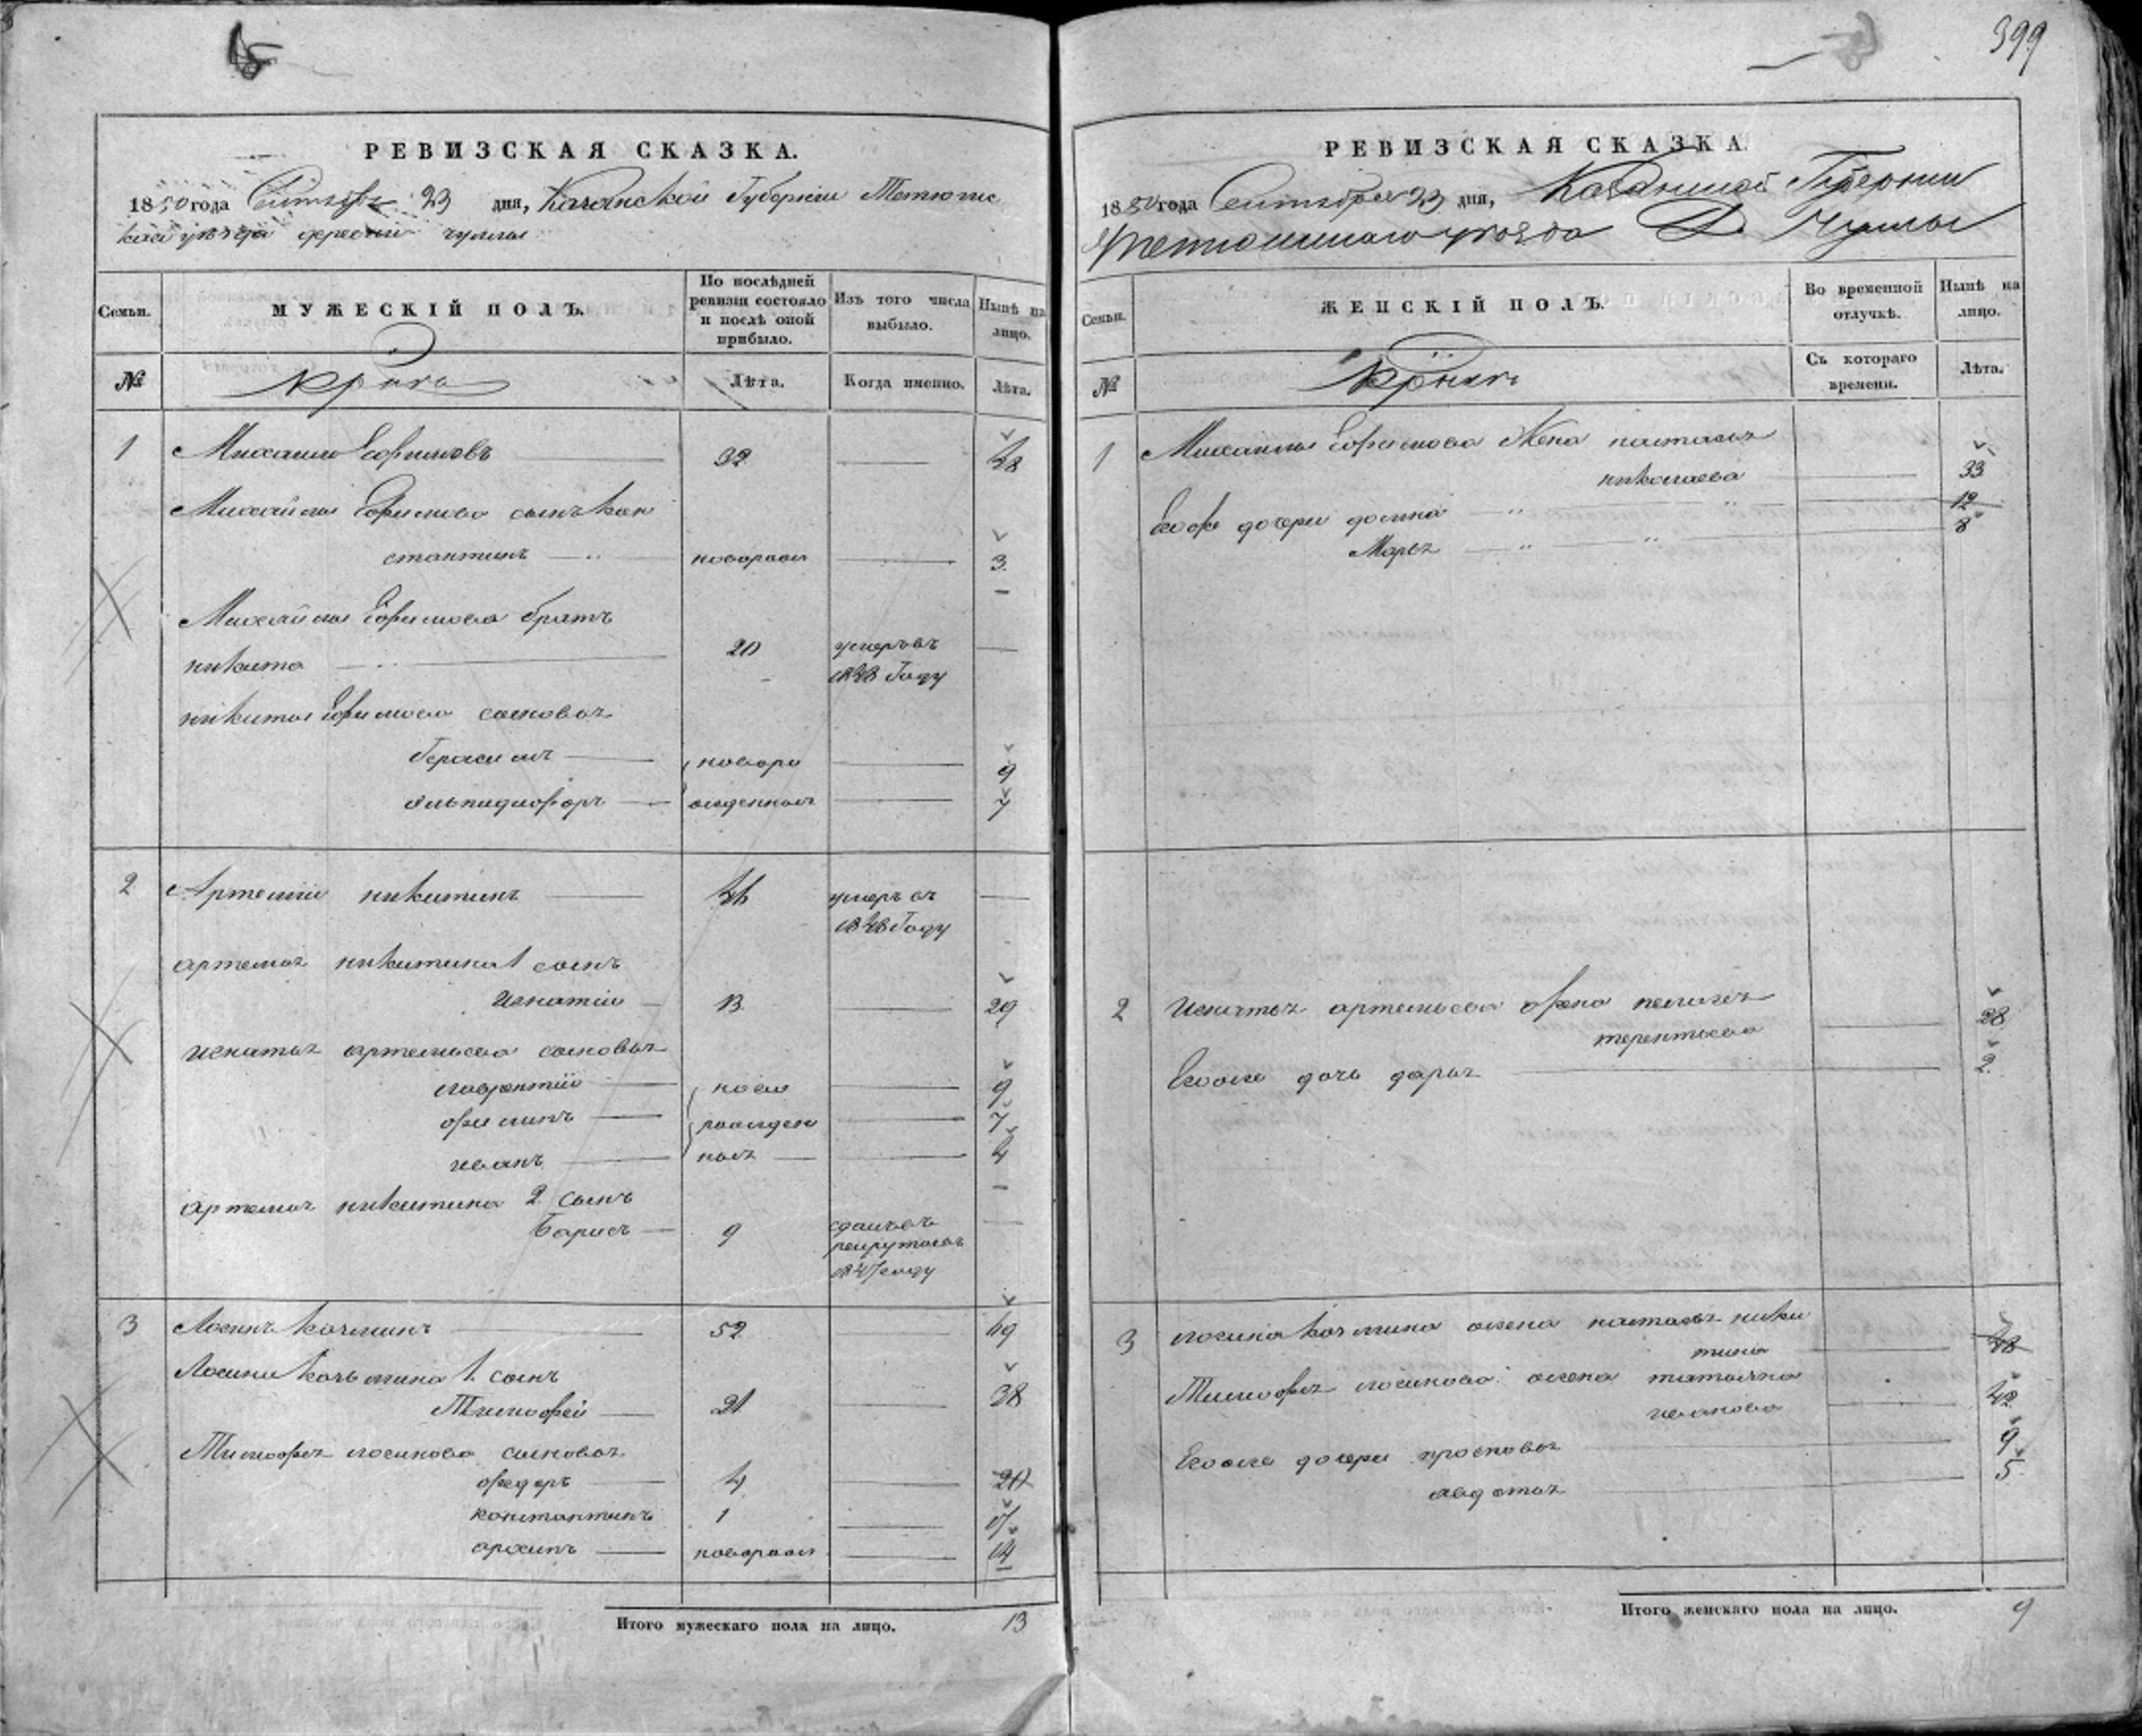 399
РЕВИЗСКАЯ СКАЗКА.
1850 года Сентября 23 дня, Казанской Губернии Тетюшс
каго уѣзда деревни чулпы
Семьи.
МУЖЕСКІЙ ПОЛЪ.
По послѣдней ревизіи состояло и послѣ оной прибыло.
Изъ того числа выбыло.
Нынѣ на лицо.
№
Лѣта.
Когда именно.
Лѣта.
1 Михаило Ефимовъ 32 48
Михайлы Ефимова сынъ Кон
стантинъ новорож 3
Михайлы Ефимова братъ
никита 20 умеръ въ
1843 Году
никиты Ефимова сыновья
Герасимъ новоро 9
Эльпидифоръ жденныя 7
2 Артемии никитинъ 46 умеръ въ
1848 Году
артемья никитина 1 сынъ
Игнатіи 13 29
игнатья артемьева сыновья
лаврентіи после 9
филипъ рожден 7
иванъ ныя 4
артемья никитина 2 сынъ
Борисъ 9 сданъ въ
рекрутывъ
1847 году
3 Логинъ козминъ 52 69
Логина козьмина 1 сынъ
Тимофей 21 38
Тимофея логинова сыновья
федоръ 4 20
константинъ 1 17
архипъ новорож 14
Итого мужескаго пола на лицо. 13
РЕВИЗСКАЯ СКАЗКА.
1850 года Сентября 23 дня, Казанской Губернии
Тетюшскаго уѣзда Д. Чулпы
Семьи.
ЖЕНСКІЙ ПОЛЪ.
Во временной отлучкѣ.
Нынѣ на лицо.
№
Съ котораго времени.
Лѣта.
1 Михаилы Ефимова Жена настасья
николаева 33
Его же дочери домна 12
Марья 8
2 Игнатья артемьева жена пелагея
терентьева 28
Его же дочь дарья 2
3 логина козмина жена настасья ники
тина 48
Тимофея логинова жена татьяна
иванова 42
Его же дочери просковья 9
авдотья 5
Итого женскаго пола на лицо. 9